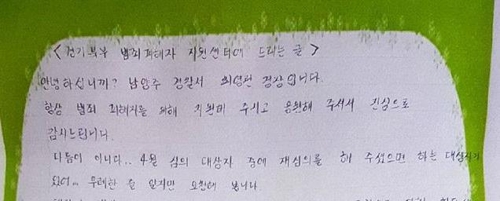 <경기북부 범죄피해자 지원센터에 드리는 글>
안녕하십니까? 남양주 경찰서 최영편 경장입니다.
항상 범죄 피해자를 위해 지원해 주시고 응원해 주셔서 진심으로
감사드립니다.
다름이 아니라.. 4월 심의 대상자 중에 재심의를 해 주셨으면 하는 대상자가
있어.. 무례한 줄 알지만 요청해 봅니다